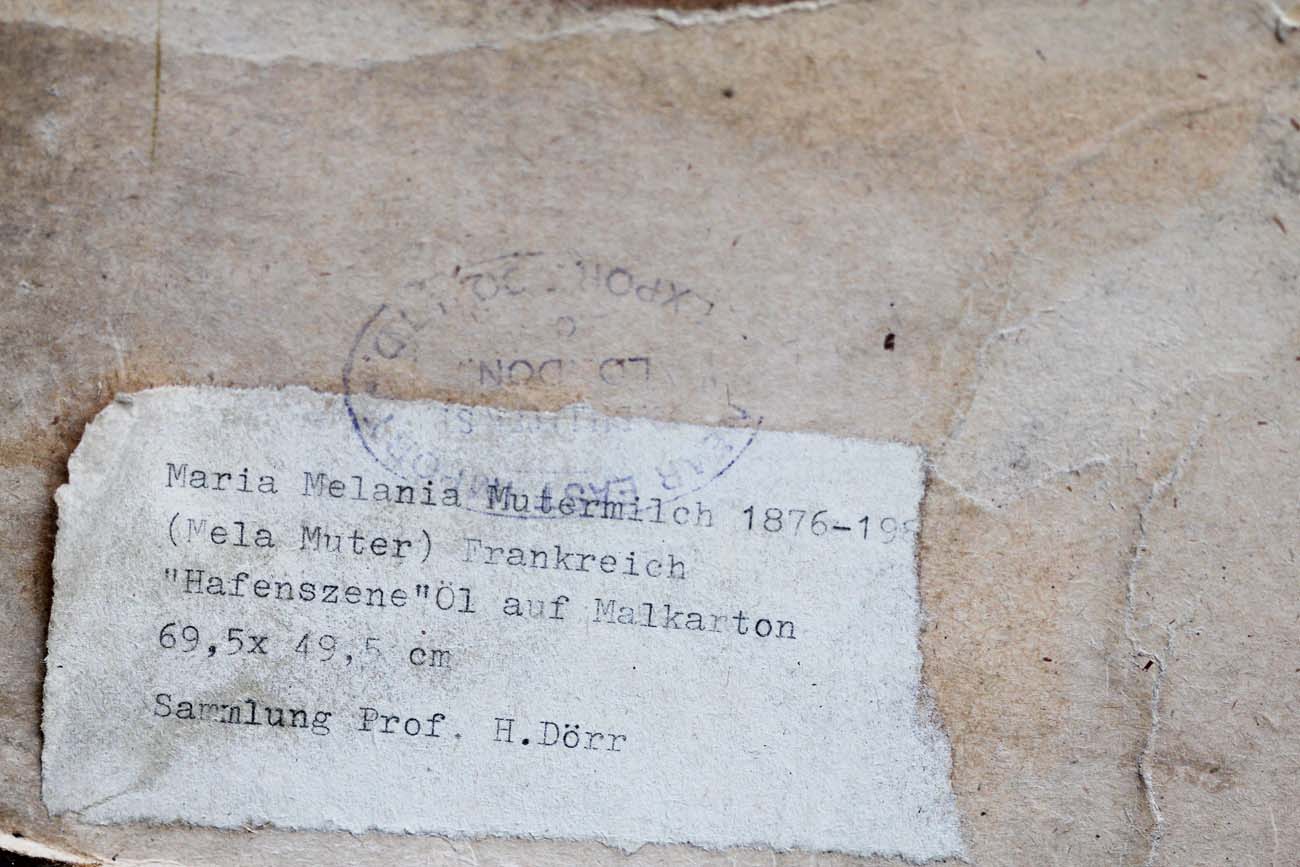 EXPORT
LONDON.
FAR EAST
Maria Melania Mutermilch 1876-19
(Mela Muter) Frankreich
"Hafenszene"Öl auf Malkarton
69,5x 49,5 cm
Sammlung Prof. H.Dörr